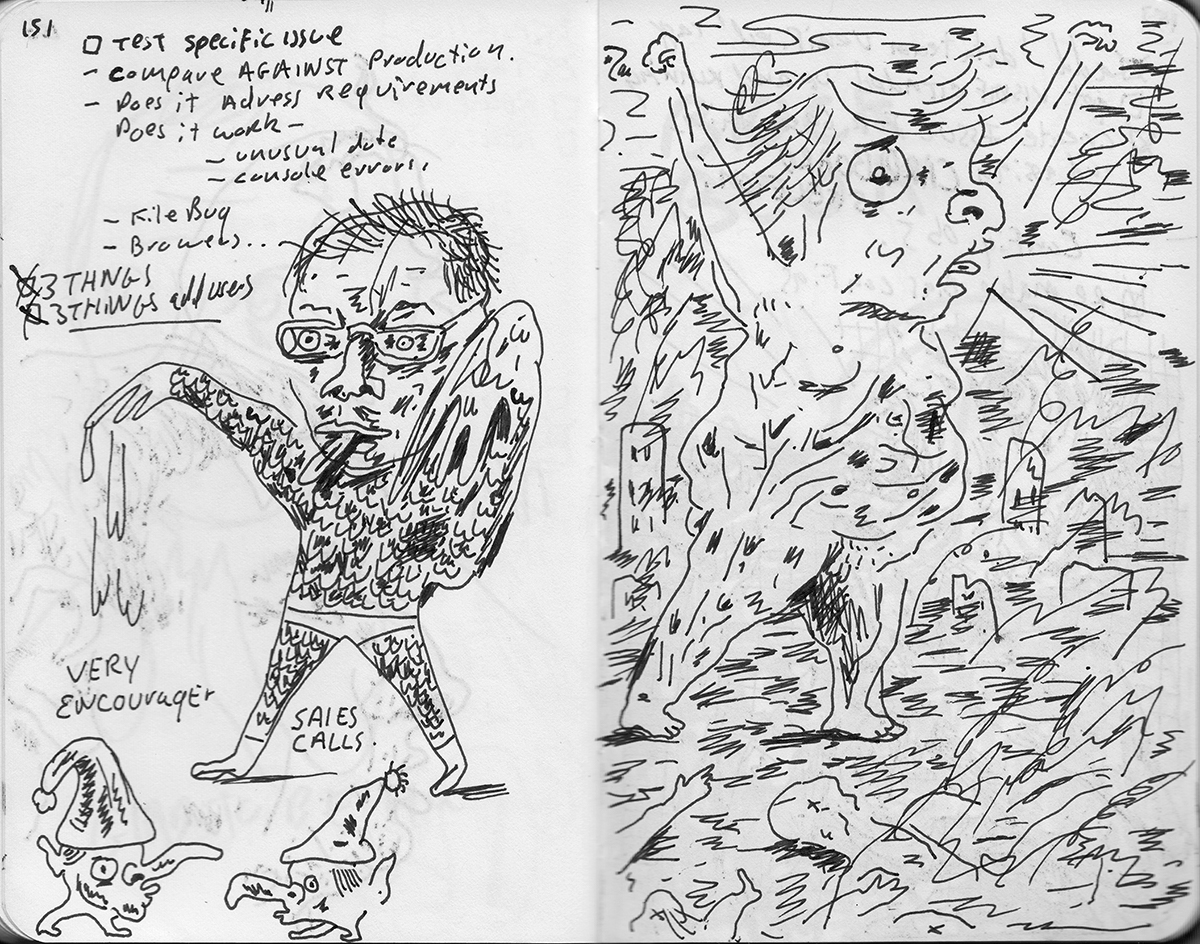 151
Test specific issue
- compare AGAINST Production.
- Does it Adress Requirements
Does it work -
- unusual date
- console errors.
- File Bug
- Browers...
3 THNGS
3 THINGS add users
VERY
ENCOURAGER
SALES
CALLS.